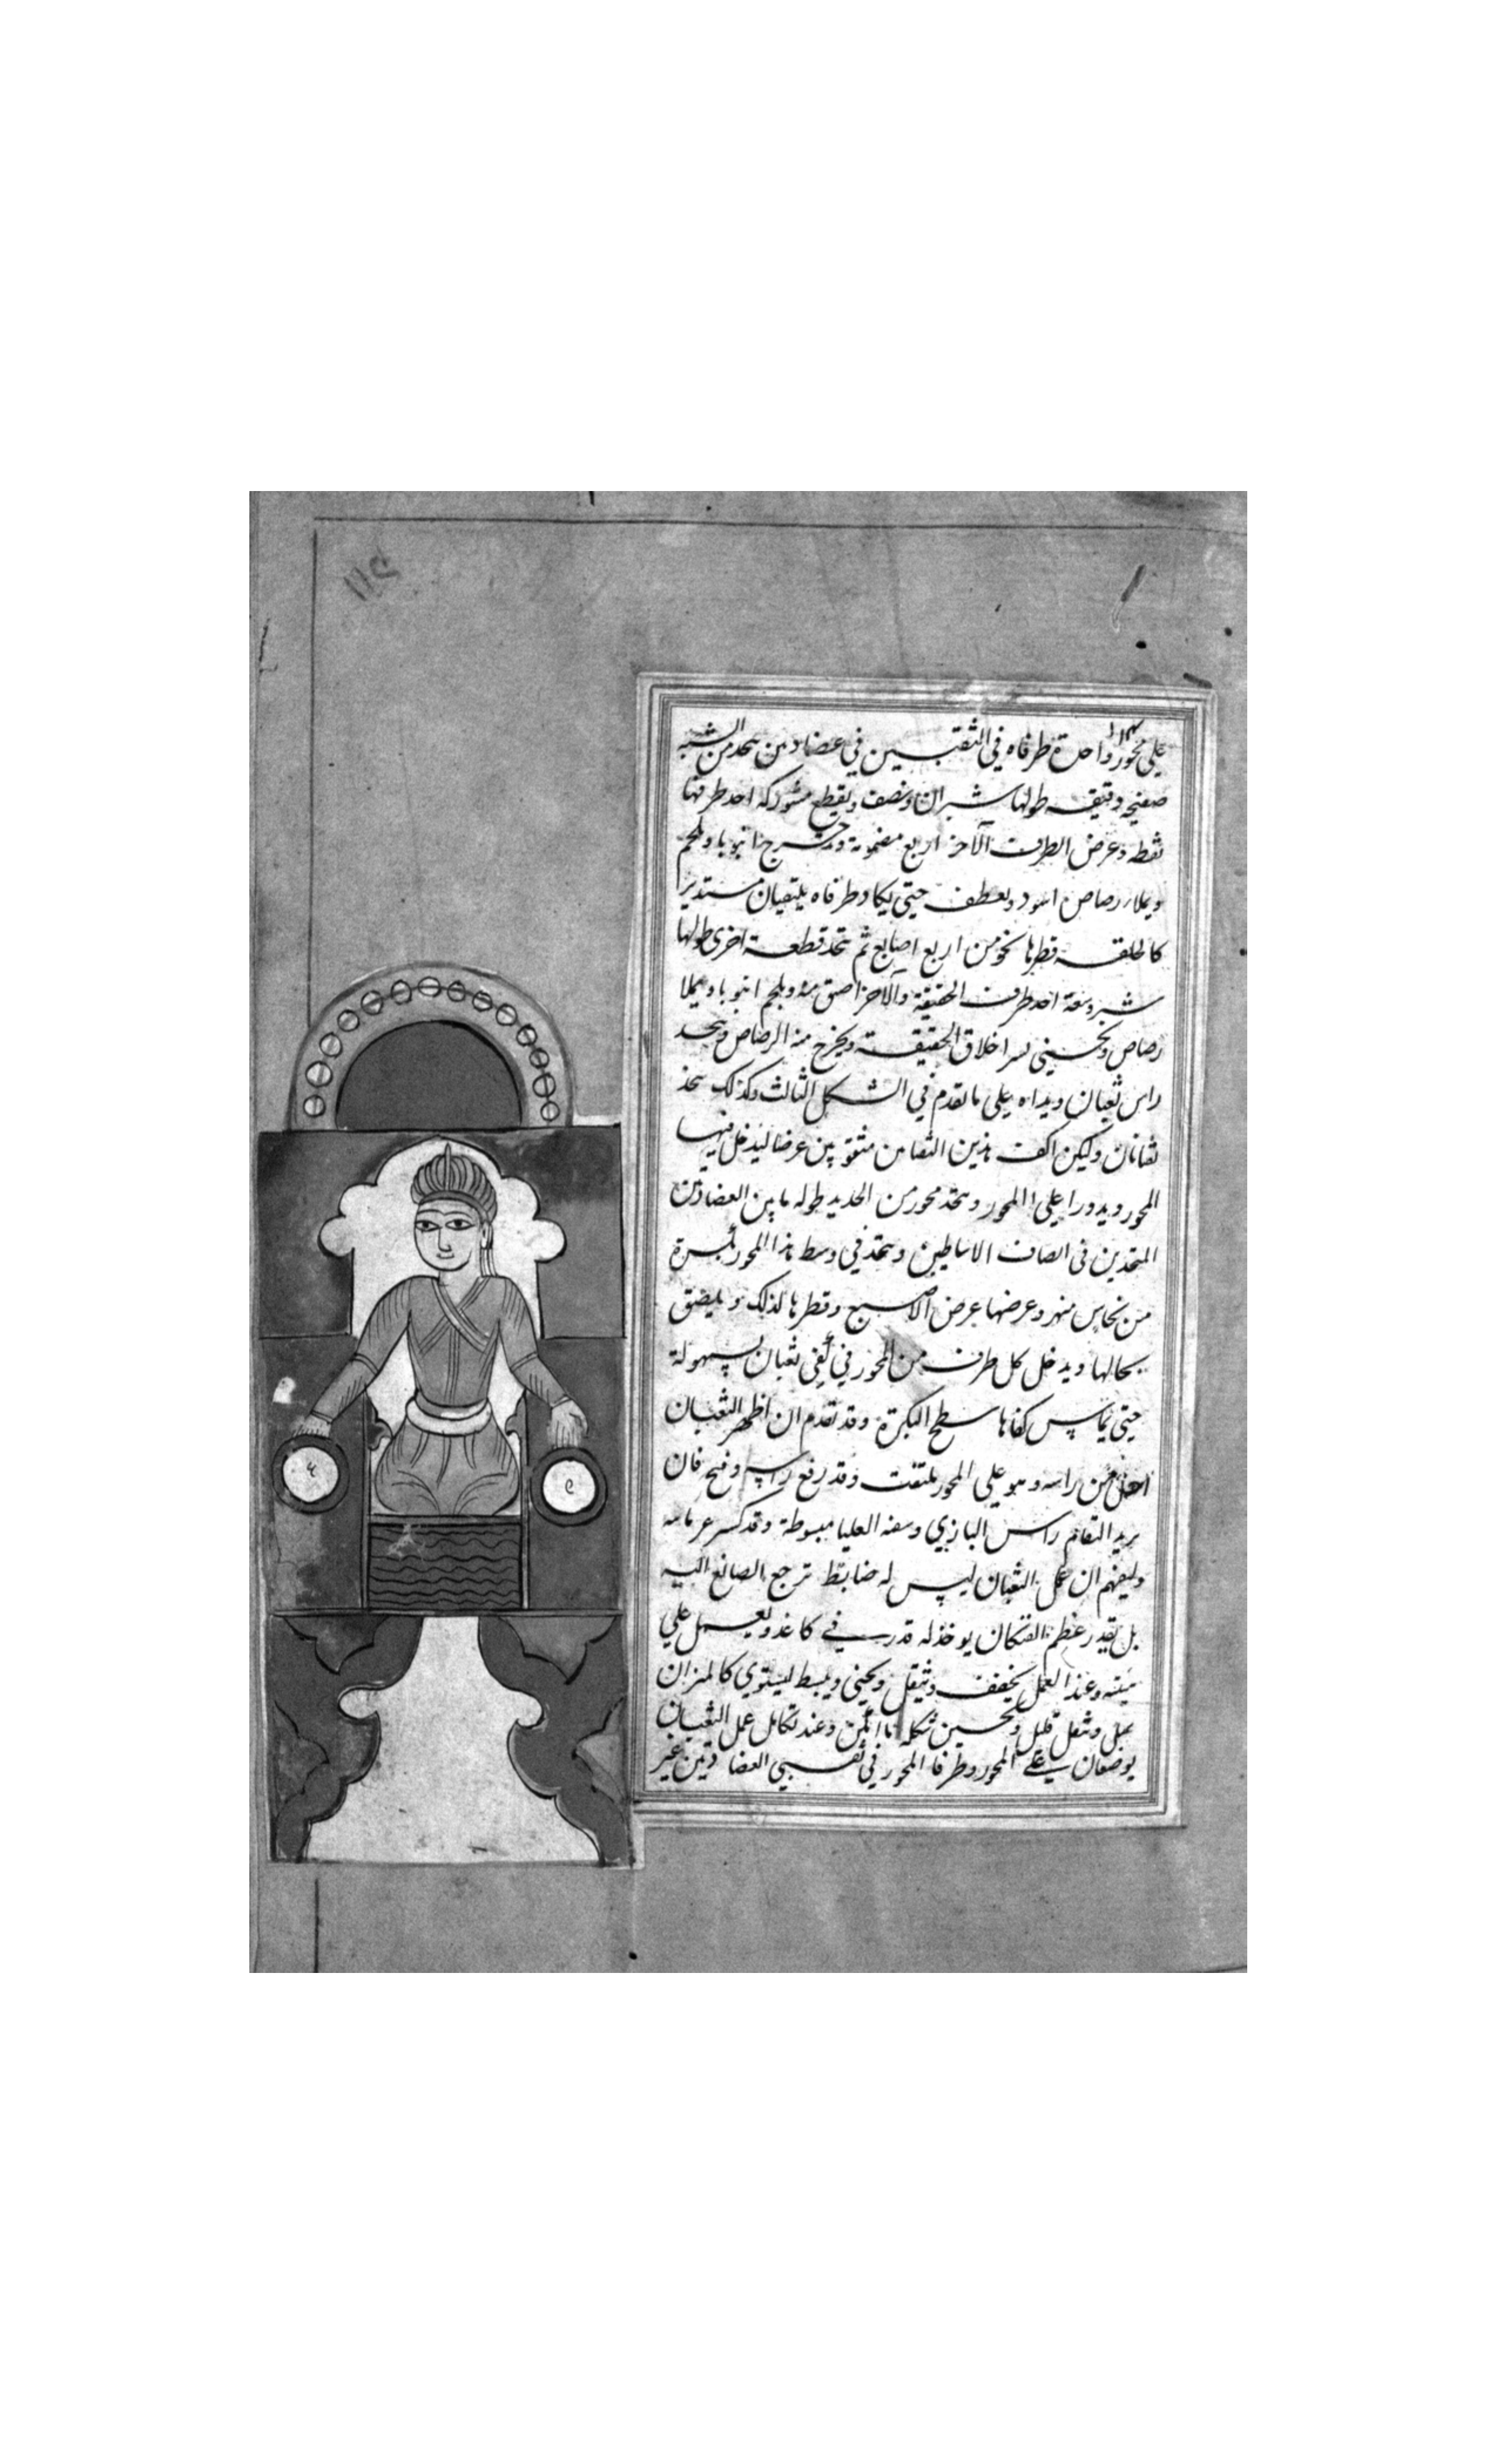 علي محور واحدة طرفاه في الثقبين في عضادتين يتخذ من الشبه
صفيحه دقيقه طولها شبران ونصف ويقطع مشوركه احد طرفها
نقطه وعرض الطرف الآخر اربع مضمومة ويشرج انبوبا ويلحم
ويملار رصاص اسود ويعطف حتي يكاد طرفاه يلتقيان مستديرا
كالحلقه قطرها نحو من اربع اصابع ثم تتخذ قطعة اخري طولها
شبر وسعة احد طرف الحقيقة والآخر اضيق منه ويلحم انبوبا ويملا
رصاص ويحني اخلاق الحقيقة ويخرج منه الرصاص ويتخذ
راس ثعبان ويداه علي ما تقدم في الشكل الثالث وكذلك يتخذ
ثعبانان وليكن اكف هذين الثعبانين مثقوبين عرضا ليدخل فيها
المحور ويدورا علي المحور ويتخذ محور من الحديد طوله ما بين العضادتين
المتخذين في انصاف الاساطين ويتخذ في وسط هذا المحور بكرة
من نحاس وعرضها عرض الاصبع وقطرها كذلك ويلصق
بحالها ويدخل كل طرف من المحور في كفي ثعبان بسهولة
حتي يماس كفاها سطح البكرة وقد تقدم ان اظهر الثعبان
من راسه وهو علي المحور ملتفت وقد رفع راسه وفتح فان
يريد التقام راس البازي وسفه العليا مبسوطة وقد كسر
وليفهم ان عمل الثعبان ليس له ضابط ترجع الصانع اليه
بل بقدر عظم الفنكان يوخذ له قدر في كاغد ويعمل علي
هيئته وعند العمل يخفف ويثقل ويحني ويبسط ليستوي كالميزان
يميل وثقل قليل وتحسين شكله ما امكن وعند تكامل عمل الثعبان
يوضعان علي المحور وطرفا المحور في ثقبي العضادتين غير